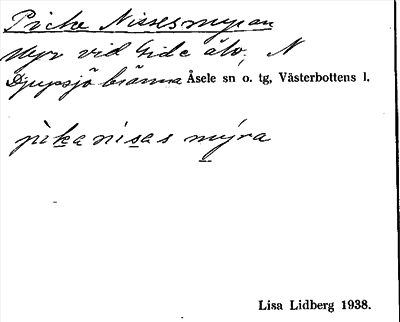 Picke Nissesmyran
Myr vid Gide älv, N
Djupsjöbränna Åsele sn o. tg, Västerbottens l.
pìka nisas mýra
Lisa Lidberg 1938.